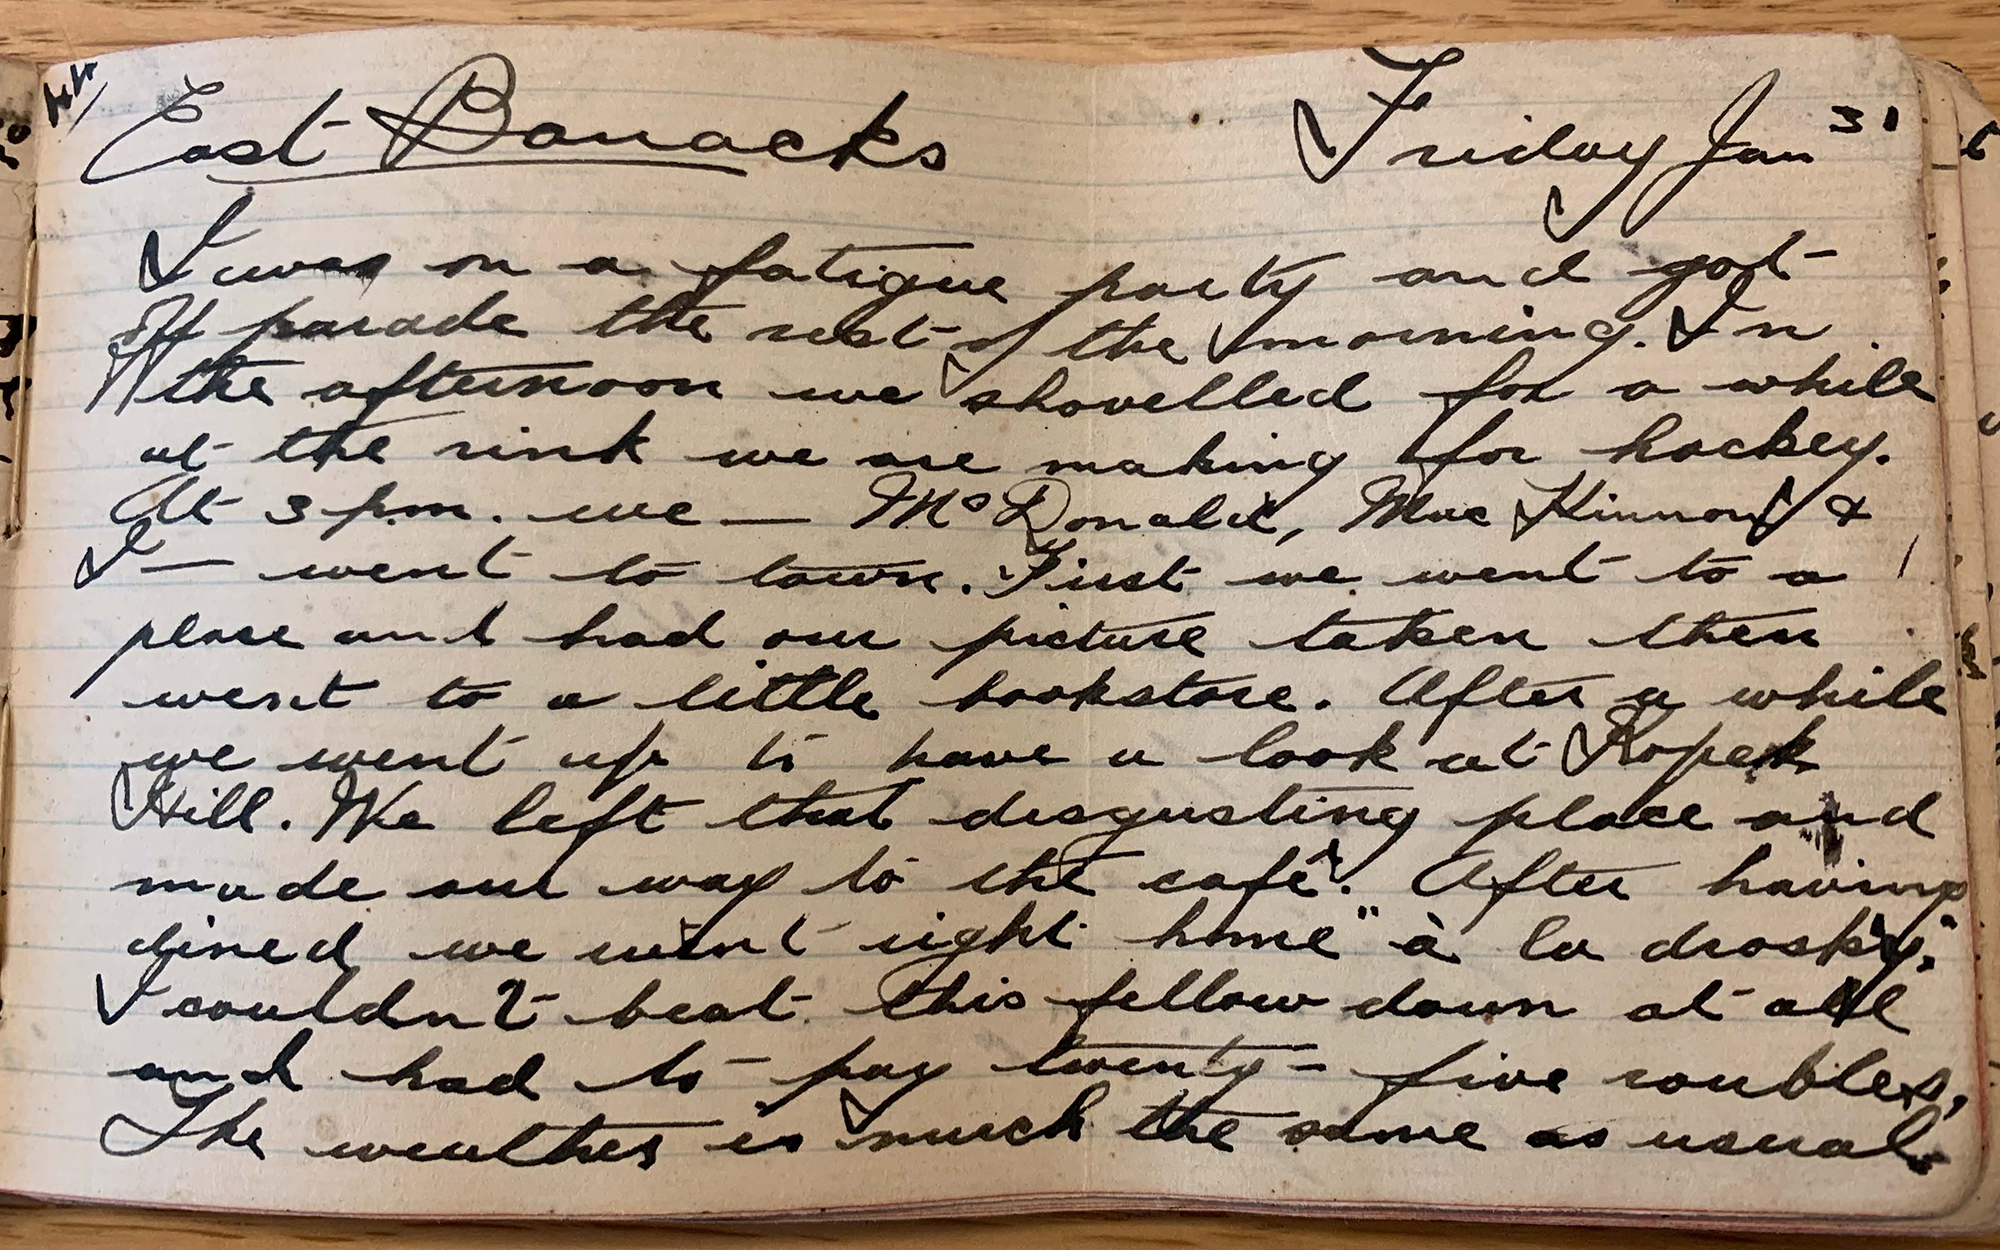 44/
East Barracks Friday Jan 31
I was on a fatigue party and got
off parade the rest of the morning. In
the afternoon we shovelled for a while
at the rink we are making for hockey.
At 3 p.m. we — McDonald, MacKinnon &
I — went to town. First we went to a
place and had our picture taken then
went to a little bookstore. After a while
we went up to have a look at Kopek
Hill. We left that disgusting place and
made our way to the café. After having
dined we went right home "à la drosky."
I couldn't beat this fellow down at all
and had to pay twenty-five roubles.
The weather is much the same as usual.